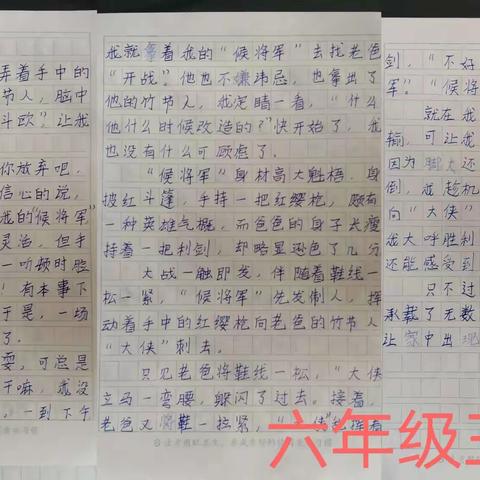 弄着手中的
节人，脑中
斗欧？让我
你放弃吧，
信心的说，
我的“候将军”
灵活，但手
一听顿时脸
！有本事下
于是，一场
了。
耍，可总是
干嘛，我没
。一到下午
我就拿着我的“候将军”去找老爸
“开战”。他也不嫌讳忌，也拿出了
他的竹节人，我定睛一看，“什么
他什么时候改造的？”快开始了，我
也没有什么可顾虑了。
“候将军”身材高大魁梧，身
披红斗篷，手持一把红缨枪，颇有
一种英雄气概，而爸爸的身子长瘦
持着一把利剑，却略显逊色了几分
大战一触即发，伴随着鞋线一
松一紧，“候将军”先发制人，挥
动着手中的红缨枪向老爸的竹节人
“大侠”刺去。
只见老爸将鞋线一松，“大侠
立马一弯腰，躲闪了过去。接着，
老爸又将鞋一拉紧，“侠”挥着
剑，“不好
军。“候将
就在我
输，可让我
因为脚大还
倒，我趁机
向“大侠”
我大呼胜利
还能感受到
只不过
承载了无数
让家中出现
六年级三